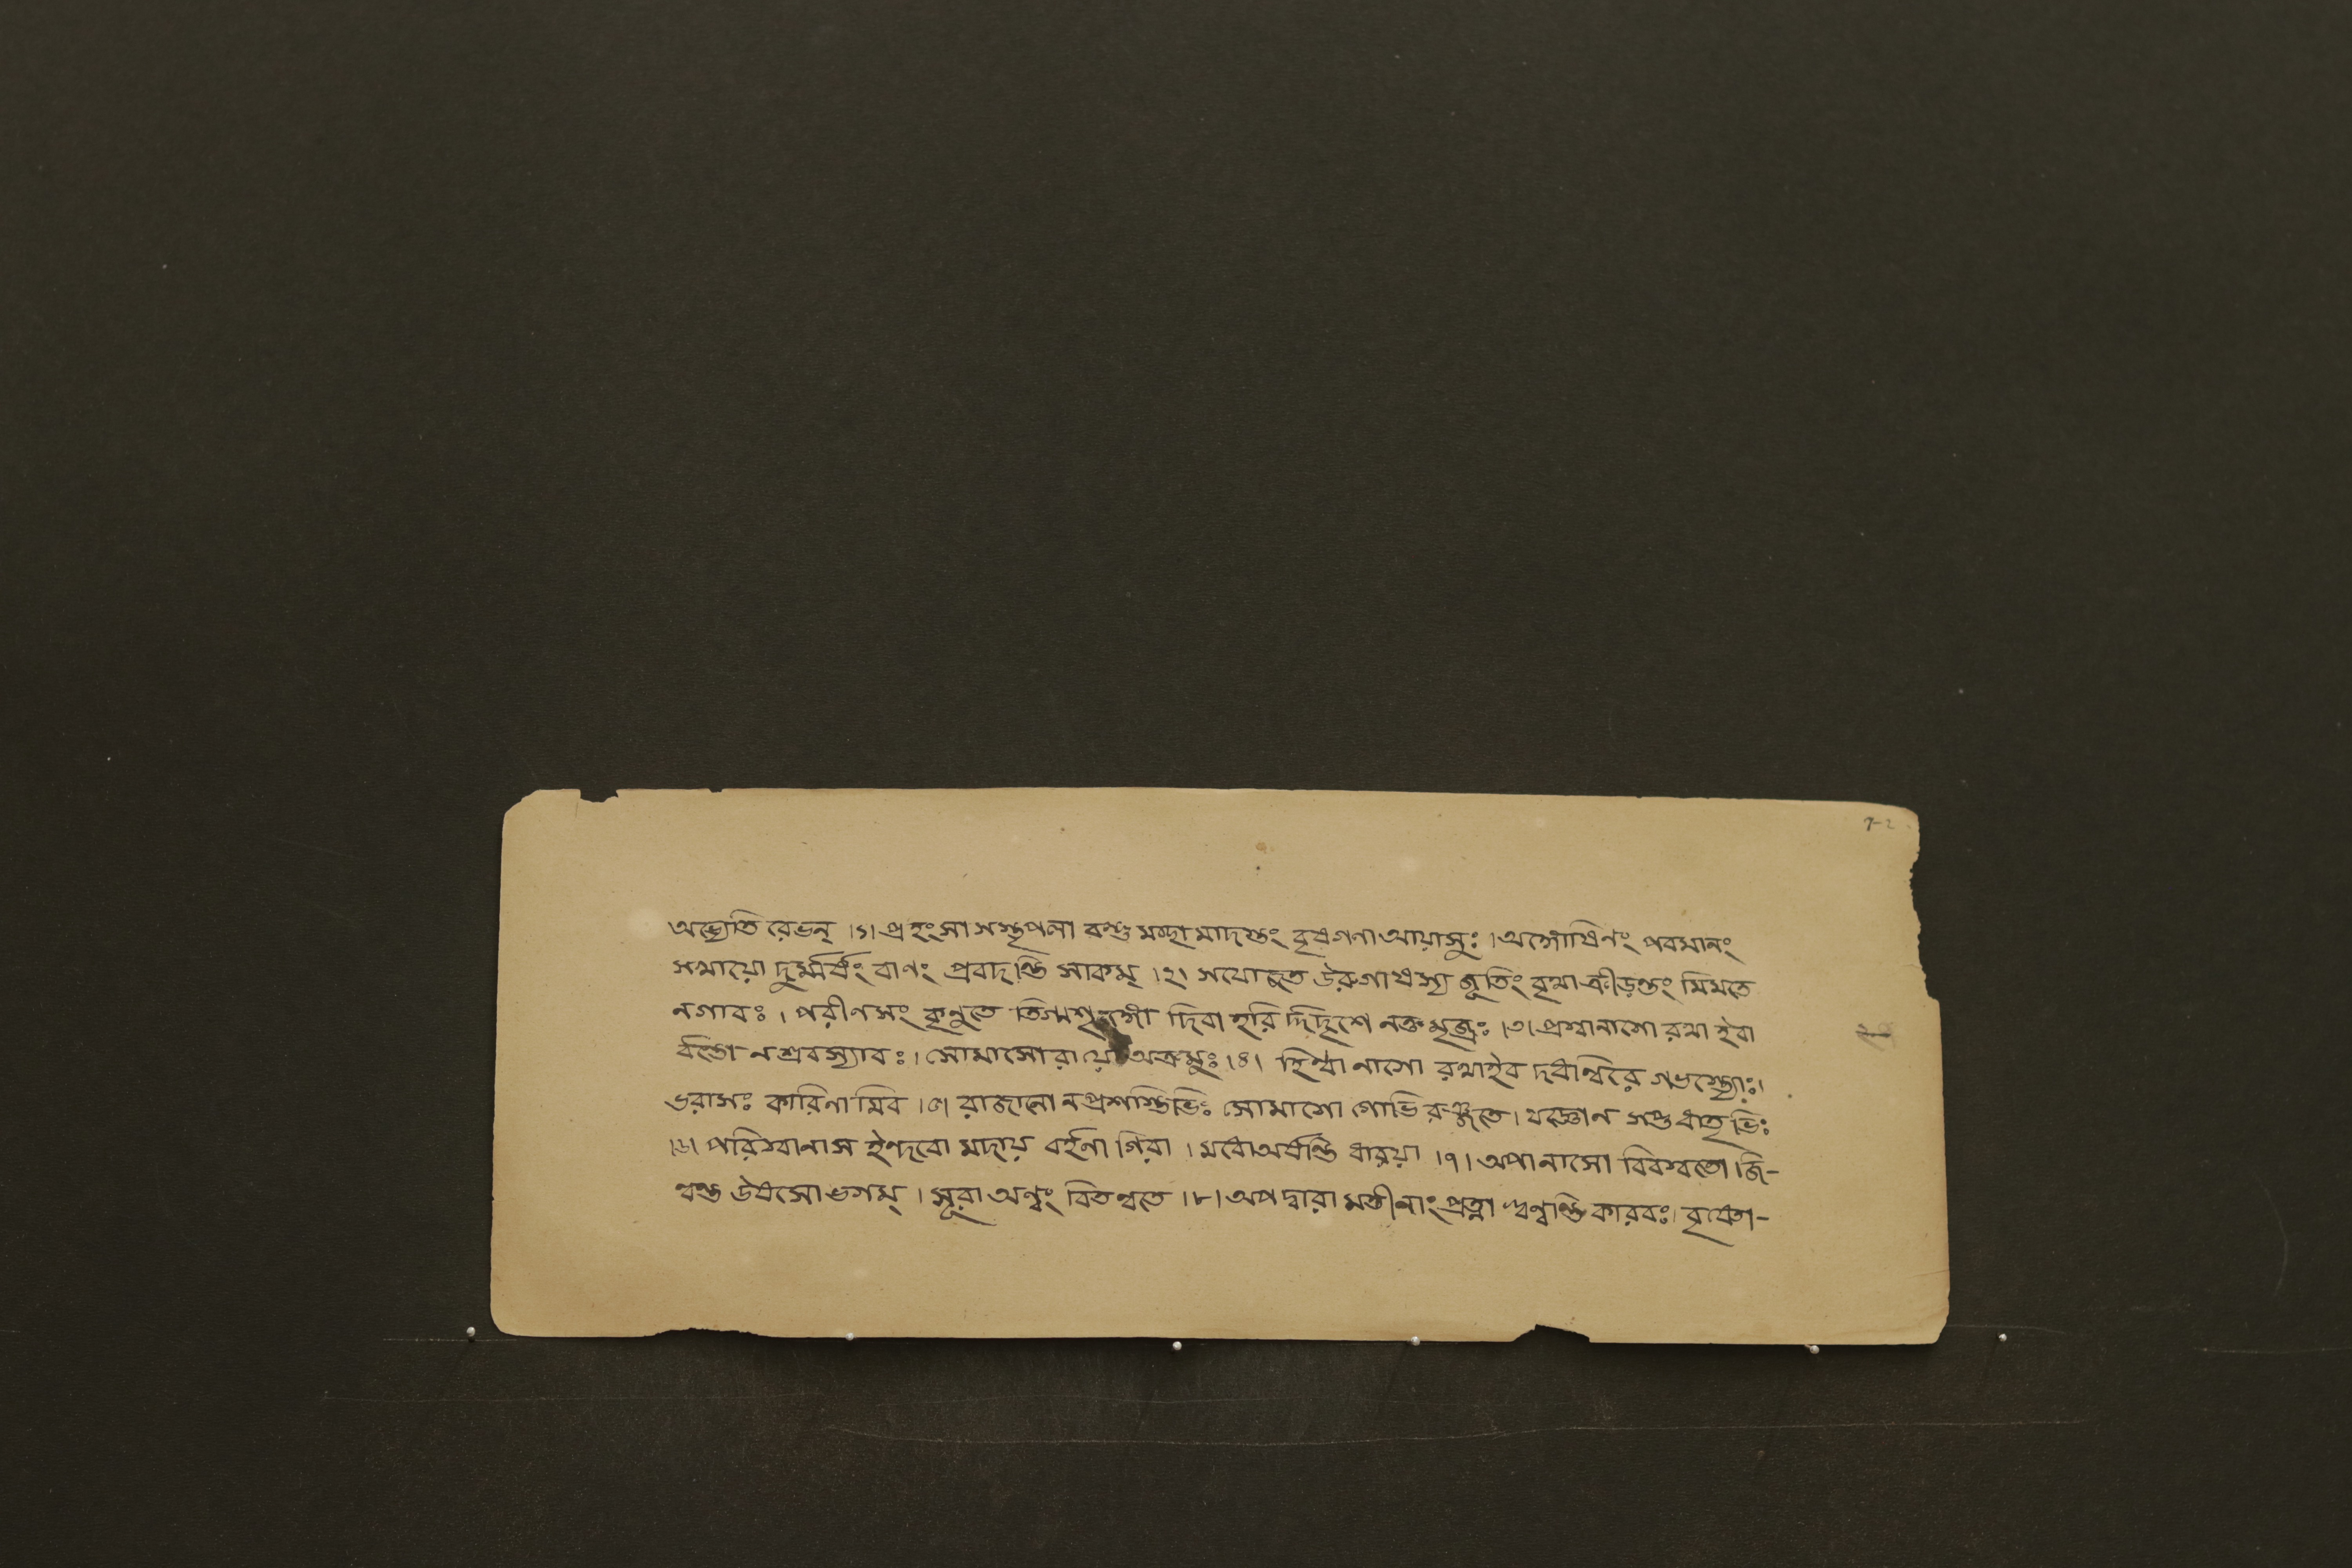 ৭২
অভ্যেতি রেভন্ ।১। প্রহংসা সস্তৃপলা বগ্নু মচ্ছা মাদস্তং বৃষগণা আয়াসুঃ । অঙ্গোষিণং পবমানং
সখায়ো দুর্ম্মর্ষং বাণং প্রবদন্তি সাকম্ ।২। সযোজত উরুগায়স্য জূতিং বৃথা ক্রীড়ন্তং মিমতে
নগাবঃ । পরীণসং কৃনুতে তিগ্মশৃঙ্গো দিবা হরি র্দদৃশে নক্তমৃজ্রঃ ।৩। প্রস্বানাসো রথা ইবা
র্বন্তো ন শ্রবস্যাবঃ । সোমাসো রায়ে অক্রমুঃ ।৪। হিন্বানাসো রথাইব দধান্বিরে গভস্ত্যোঃ।
ভরাসঃ কারিণামিব ।৫। রাজানো ন প্রশাস্তিভিঃ সোমাসো গোভি রঞ্জতে । যজ্ঞোন সপ্তধাতৃভিঃ
।৬। পরিস্বানাস ইন্দবো মদায় বর্হণা গিরা । মধোঅর্ষন্তি ধারয়া ।৭। অপানাসো বিবস্বতো জি-
ন্বন্ত উষসো ভগম্ । সূরা অন্বং বিতন্বতে ।৮। অপ দ্বারা মতীনাং প্রত্না ঋণ্বন্তি কারবঃ। বৃষ্ণো-